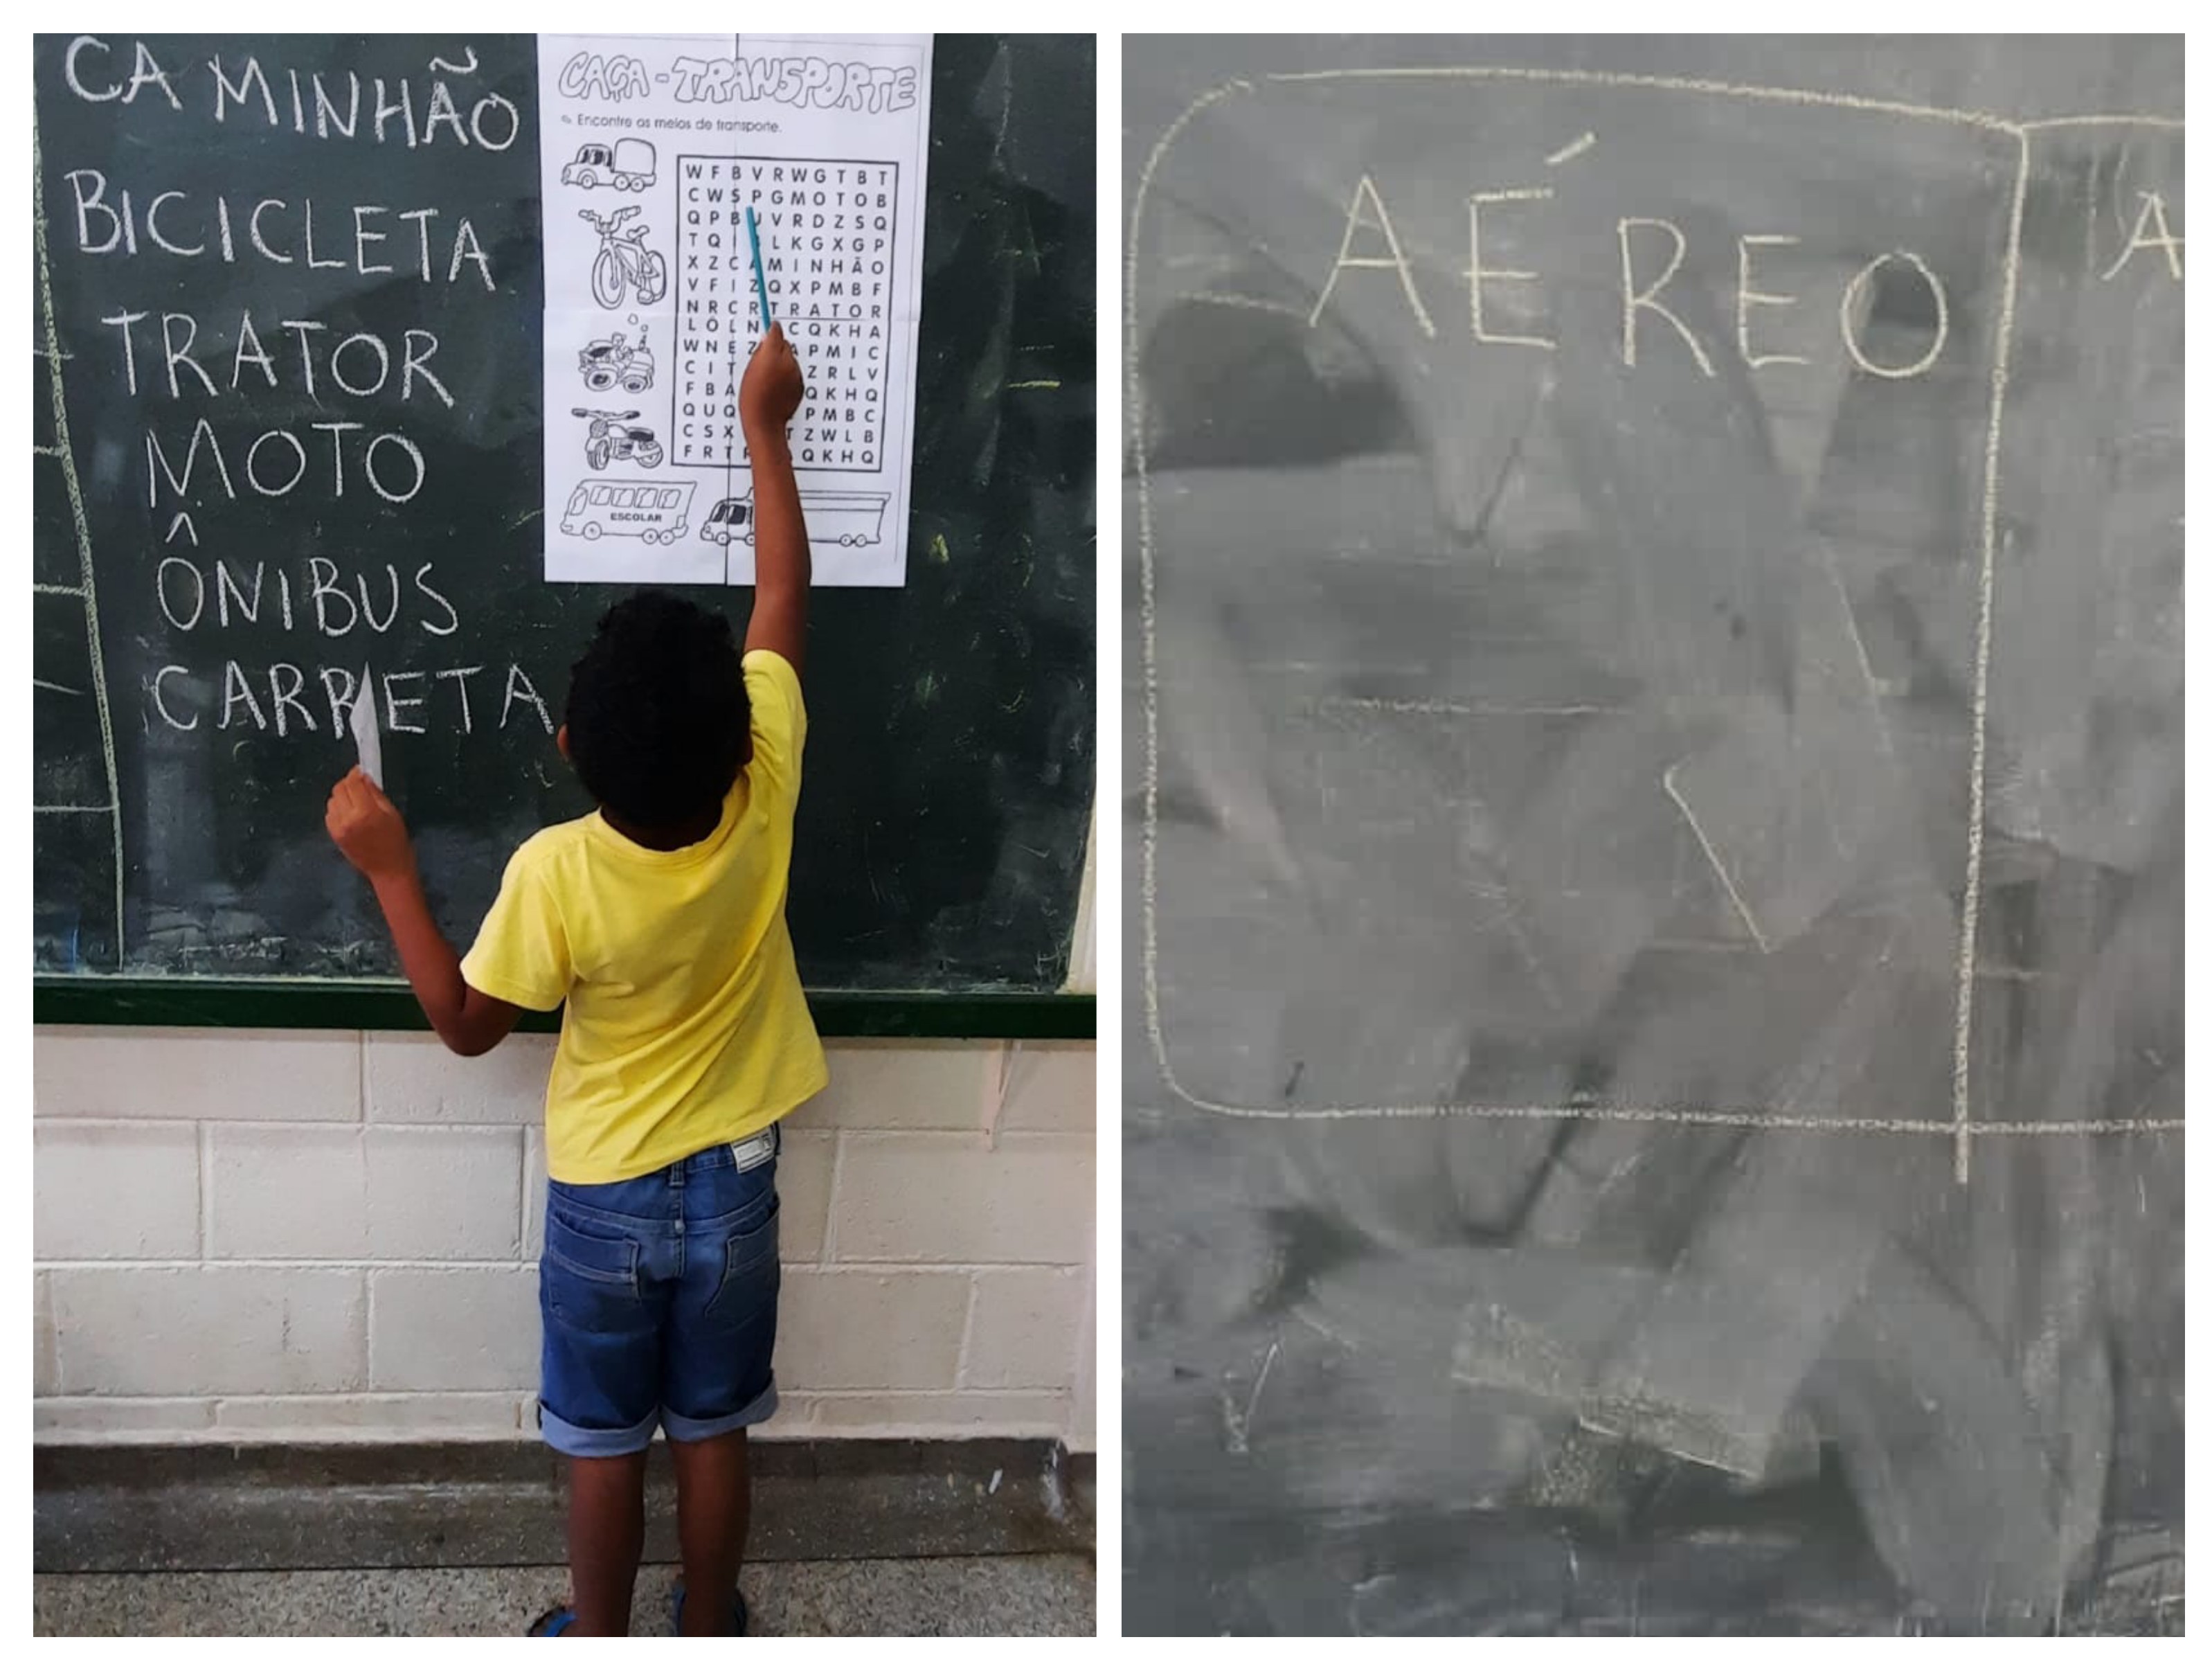 CAMINHÃO
BICICLETA
TRATOR
MOTO
ÔNIBUS
CARRETA
CAÇA-TRANSPORTE
Encontre os meios de transporte.
W F B V R W G T B T
C W S P G M O T O B
Q P B U V R D Z S Q
T Q I L K G X G P
X Z C A M I N H Ã O
V F I Z Q X P M B F
N R C R T R A T O R
L O L N C Q K H A
W N E Z A P M I C
C I T Z R L V
F B A Q K H Q
Q U Q P M B C
C S X T Z W L B
F R T Q K H Q
ESCOLAR
AÉREO
A